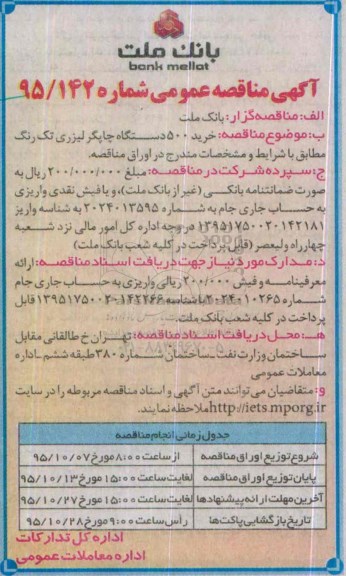 بانک ملت
bank mellat
آگهی مناقصه عمومی شماره ۹۵/۱۴۲
الف: مناقصه‌گزار: بانک ملت
ب: موضوع مناقصه: خرید ۵۰۰ دستگاه چاپگر لیزری تک رنگ
مطابق با شرایط و مشخصات مندرج در اوراق مناقصه.
ج: سپرده شرکت در مناقصه: مبلغ ۲۰۰/۰۰۰/۰۰۰ ریال به
صورت ضمانتنامه بانکی (غیر از بانک ملت)، و یا فیش نقدی واریزی
به حساب جاری جام به شماره ۲۰۲۴۰۱۳۵۹۵ به شناسه واریز
۱۳۹۵۱۷۵۰۰۲۰۱۴۲۱۸۱ در وجه اداره کل امور مالی نزد شعبه
چهارراه ولیعصر (قابل پرداخت در کلیه شعب بانک ملت)
د: مدارک مورد نیاز جهت دریافت اسناد مناقصه: ارائه
معرفینامه و فیش ۲۰۰/۰۰۰ ریالی واریزی به حساب جاری جام
شماره ۲۰۲۴۰۱۰۲۶۵ با شناسه ۱۳۹۵۱۷۵۰۰۲۰۱۴۲۲۶۶ قابل
پرداخت در کلیه شعب بانک ملت.
هـ: محل دریافت اسناد مناقصه: تهران خ طالقانی مقابل
ساختمان وزارت نفت ساختمان شماره ۳۸۰ طبقه ششم ـ اداره
معاملات عمومی
و: متقاضیان می‌توانند متن آگهی و اسناد مناقصه مربوطه را در سایت
http://iets.mporg.ir ملاحظه نمایند.
جدول زمانی انجام مناقصه
شروع توزیع اوراق مناقصه از ساعت ۸:۰۰ مورخ ۹۵/۱۰/۰۷
پایان توزیع اوراق مناقصه لغایت ساعت ۱۵:۰۰ مورخ ۹۵/۱۰/۱۳
آخرین مهلت ارائه پیشنهادها لغایت ساعت ۱۵:۰۰ مورخ ۹۵/۱۰/۲۷
تاریخ بازگشایی پاکت‌ها رأس ساعت ۹:۰۰ مورخ ۹۵/۱۰/۲۸
اداره کل تدارکات
اداره معاملات عمومی